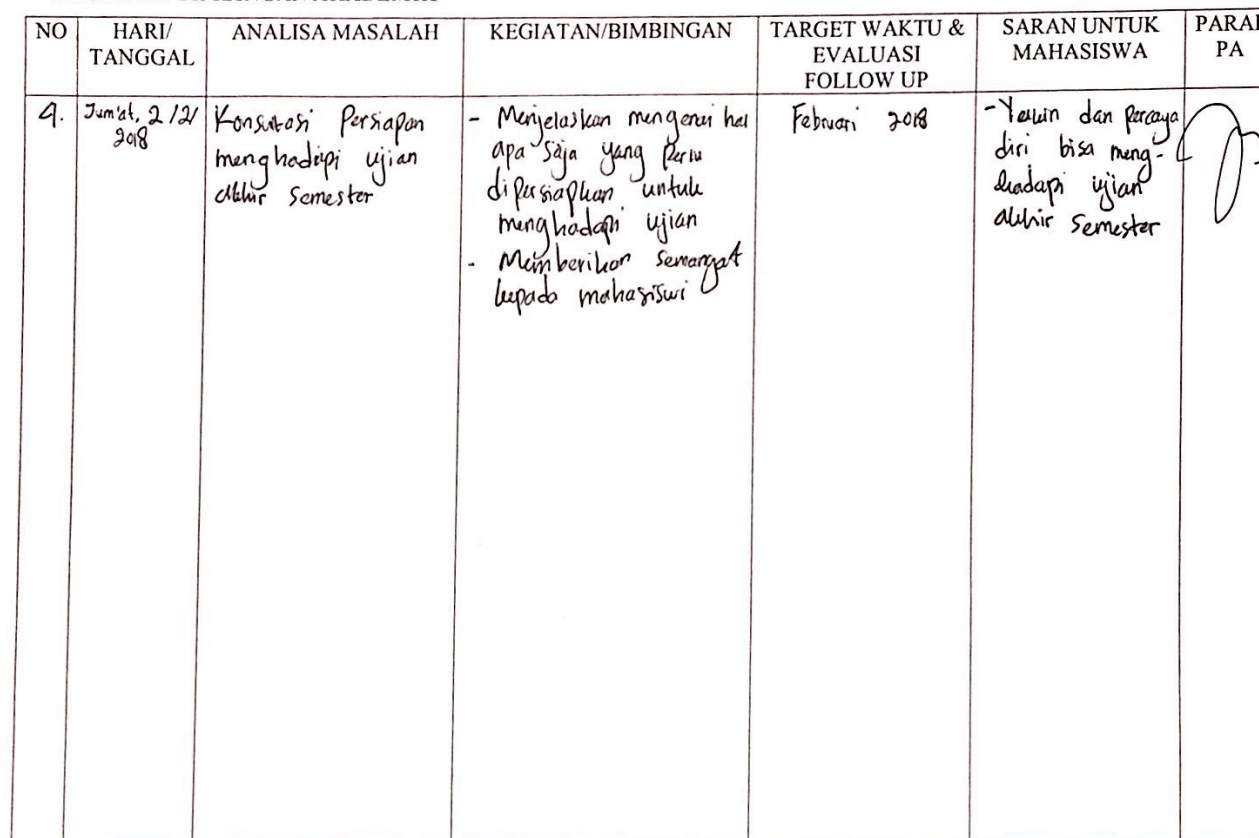 NO
HARI/
TANGGAL
ANALISA MASALAH
KEGIATAN/BIMBINGAN
TARGET WAKTU &
EVALUASI
FOLLOW UP
SARAN UNTUK
MAHASISWA
PARAF
PA
4.
Jum'at, 2/2/
2018
Konsultasi Persiapan
menghadapi ujian
akhir Semester
- Menjelaskan mengenai hal
apa saja yang perlu
dipersiapkan untuk
menghadapi ujian
- Memberikan Semangat
kepada mahasiswi
Februari 2018
- Yakin dan percaya
diri bisa meng-
hadapi ujian
akhir Semester